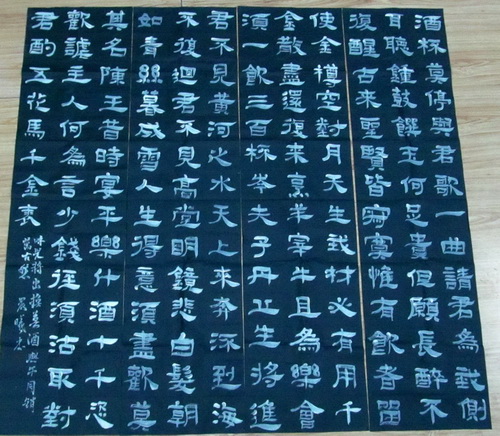 酒杯莫停與君歌一曲請君為我側
耳聽鐘鼓饌玉何足貴但願長醉不
復醒古來聖賢皆寂寞惟有飲者留
使金樽空對月天生我材必有用千
金散盡還復來烹羊宰牛且為樂會
須一飲三百杯岑夫子丹丘生將進
君不見黃河之水天上來奔流到海
不復迴君不見高堂明鏡悲白髮朝
如青絲暮成雪人生得意須盡歡莫
其名陳王昔時宴平樂什酒十千恣
歡謔主人何為言少錢徑須沽取對
君酌五花馬千金裘
呼兒將出換美酒與爾同銷
萬古愁